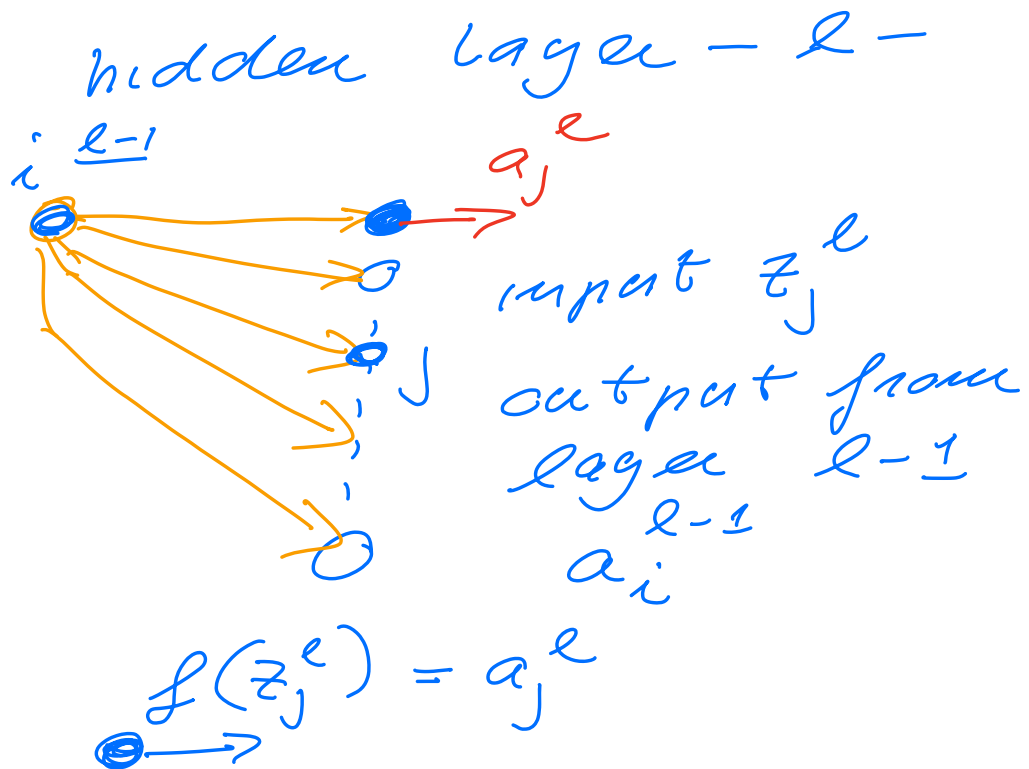 hidden layer - l -
i l-1
a_j^l
input z_j^l
j
output from
layer l-1
a_i^{l-1}
f(z_j^l) = a_j^l